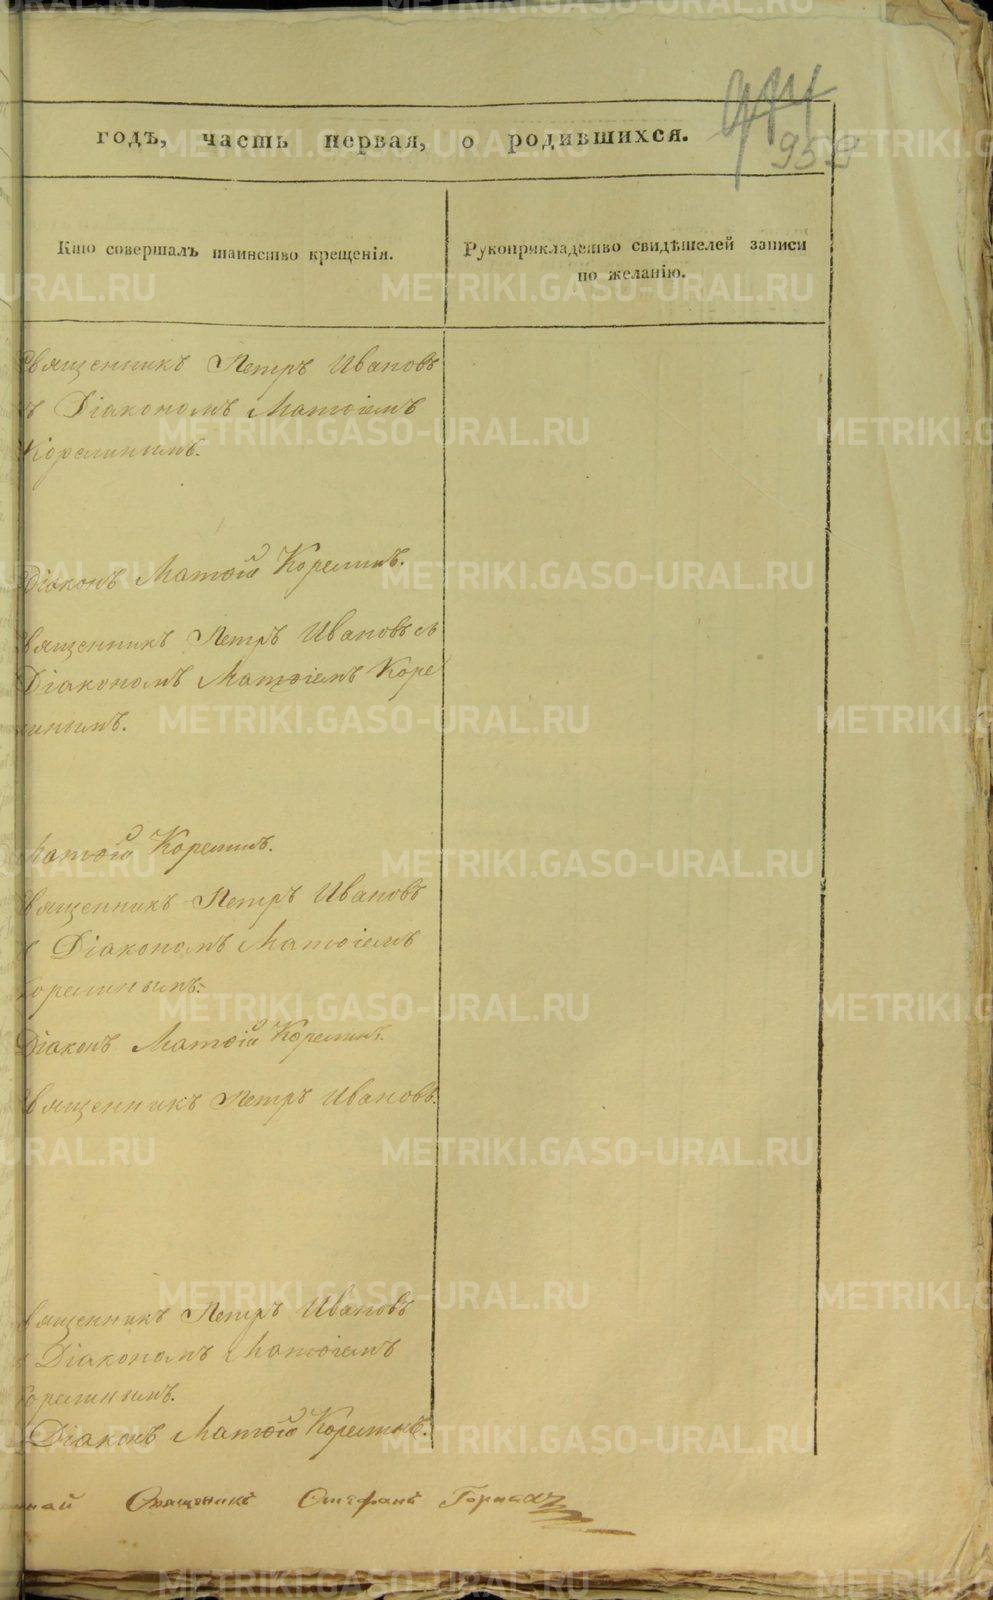 959
годъ, часть первая, о родившихся.
Кто совершалъ таинство крещенія.
Рукоприкладство свидѣтелей записи
по желанію.
Священникъ Петръ Ивановъ
съ Діакономъ Матѳіемъ
Корелинымъ.
Діаконъ Матѳій Корелинъ.
Священникъ Петръ Ивановъ съ
Діакономъ Матѳіемъ Коре
линымъ.
Матѳій Корелинъ.
Священникъ Петръ Ивановъ
съ Діакономъ Матѳіемъ
Корелинымъ.
Діаконъ Матѳій Корелинъ.
Священникъ Петръ Ивановъ.
Священникъ Петръ Ивановъ
съ Діакономъ Матѳіемъ
Корелинымъ.
Діаконъ Матѳій Корелинъ.
Священикъ Стефанъ
METRIKI.GASO-URAL.RU